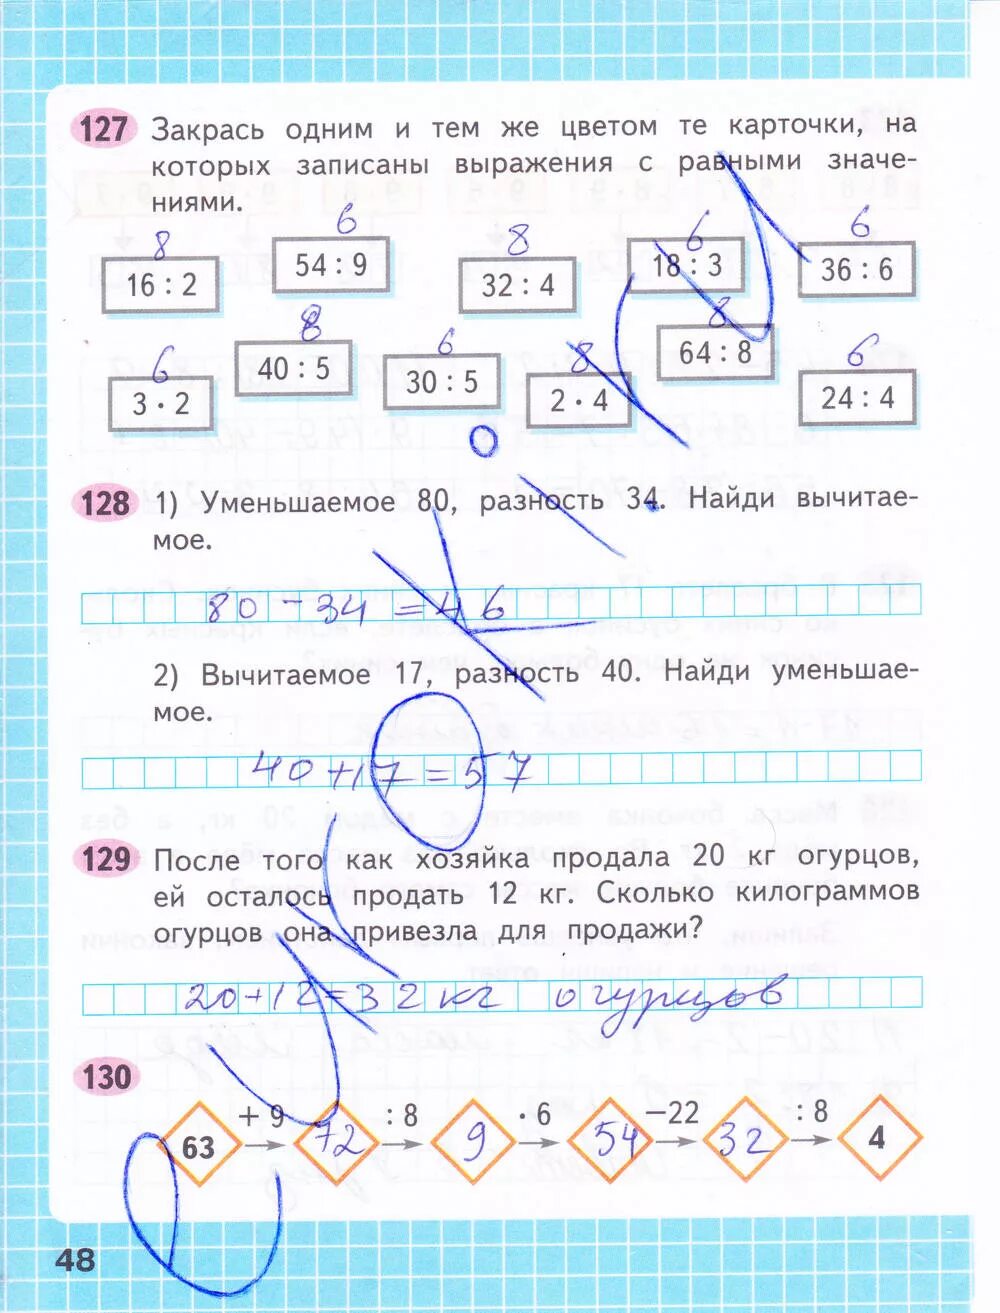 127 Закрась одним и тем же цветом те карточки, на
которых записаны выражения с равными значе-
ниями.
8 6 8 6 6
16 : 2 54 : 9 32 : 4 18 : 3 36 : 6
6 8 6 8 8 6
3 · 2 40 : 5 30 : 5 2 · 4 64 : 8 24 : 4
128 1) Уменьшаемое 80, разность 34. Найди вычитае-
мое.
80 - 34 = 46
2) Вычитаемое 17, разность 40. Найди уменьшае-
мое.
40 + 17 = 57
129 После того как хозяйка продала 20 кг огурцов,
ей осталось продать 12 кг. Сколько килограммов
огурцов она привезла для продажи?
20 + 12 = 32 кг огурцов
130
+ 9 : 8 · 6 −22 : 8
63 72 9 54 32 4
48